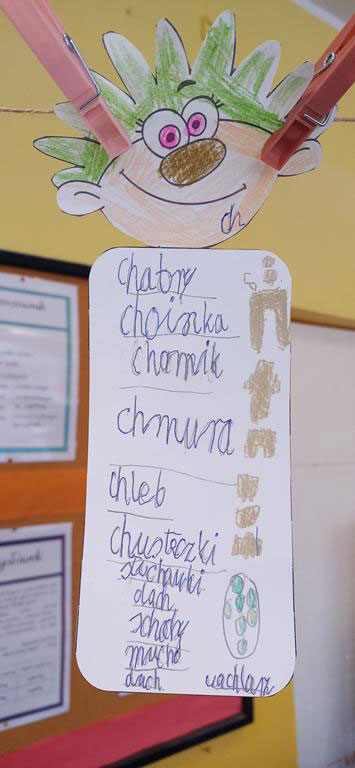 ch
chabry
choinka
chomik
chmura
chleb
chusteczki
słuchawki
dach
schody
mucha
dach wachlarz